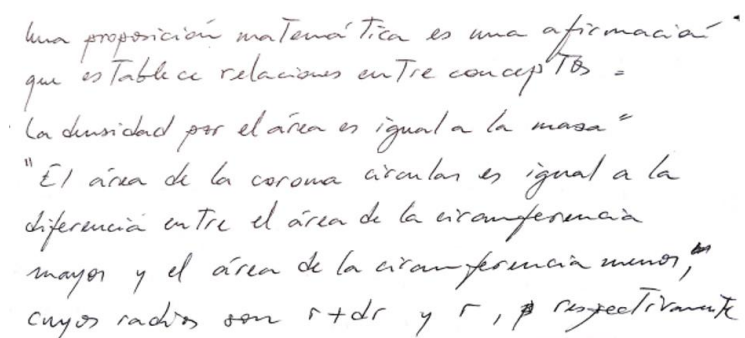 Una proposición matemática es una afirmación
que establece relaciones entre conceptos.
"La densidad por el área es igual a la masa"
"El área de la corona circular es igual a la
diferencia entre el área de la circunferencia
mayor y el área de la circunferencia menor,"
cuyos radios son r+dr y r, respectivamente